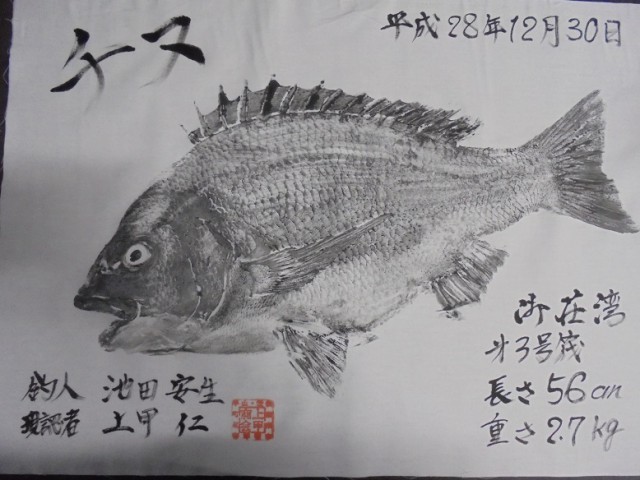 チヌ
平成28年12月30日
御荘湾
才3号筏
長さ56cm
重さ2.7kg
釣人 池田安生
現認者 上甲 仁